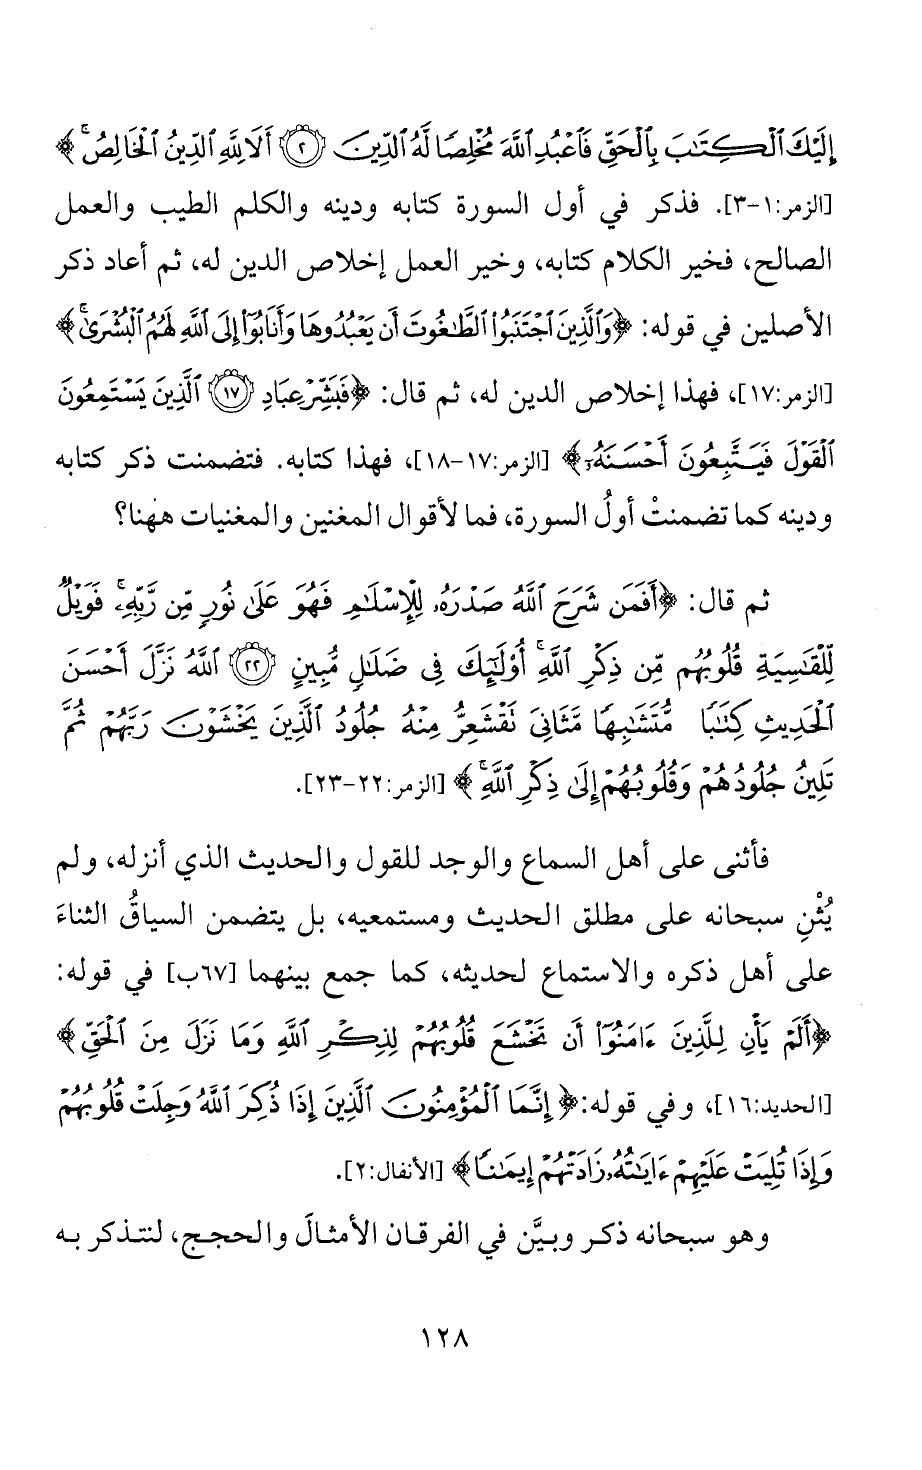 إِلَيْكَ ٱلْكِتَٰبَ بِٱلْحَقِّ فَٱعْبُدِ ٱللَّهَ مُخْلِصًا لَّهُ ٱلدِّينَ ۝٢ أَلَا لِلَّهِ ٱلدِّينُ ٱلْخَالِصُ ۚ﴾
[الزمر:١-٣]. فذكر في أول السورة كتابه ودينه والكلم الطيب والعمل
الصالح، فخير الكلام كتابه، وخير العمل إخلاص الدين له، ثم أعاد ذكر
الأصلين في قوله: ﴿وَٱلَّذِينَ ٱجْتَنَبُوا۟ ٱلطَّٰغُوتَ أَن يَعْبُدُوهَا وَأَنَابُوٓا۟ إِلَى ٱللَّهِ لَهُمُ ٱلْبُشْرَىٰ ۚ﴾
[الزمر:١٧]، فهذا إخلاص الدين له، ثم قال: ﴿فَبَشِّرْ عِبَادِ ۝١٧ ٱلَّذِينَ يَسْتَمِعُونَ
ٱلْقَوْلَ فَيَتَّبِعُونَ أَحْسَنَهُۥٓ﴾ [الزمر:١٧-١٨]، فهذا كتابه. فتضمنت ذكر كتابه
ودينه كما تضمنتْ أولُ السورة، فما لأقوال المغنين والمغنيات ههنا؟
ثم قال: ﴿أَفَمَن شَرَحَ ٱللَّهُ صَدْرَهُۥ لِلْإِسْلَٰمِ فَهُوَ عَلَىٰ نُورٍ مِّن رَّبِّهِۦ ۚ فَوَيْلٌ
لِّلْقَٰسِيَةِ قُلُوبُهُم مِّن ذِكْرِ ٱللَّهِ ۚ أُو۟لَٰٓئِكَ فِى ضَلَٰلٍ مُّبِينٍ ۝٢٢ ٱللَّهُ نَزَّلَ أَحْسَنَ
ٱلْحَدِيثِ كِتَٰبًا مُّتَشَٰبِهًا مَّثَانِىَ تَقْشَعِرُّ مِنْهُ جُلُودُ ٱلَّذِينَ يَخْشَوْنَ رَبَّهُمْ ثُمَّ
تَلِينُ جُلُودُهُمْ وَقُلُوبُهُمْ إِلَىٰ ذِكْرِ ٱللَّهِ ۚ﴾ [الزمر:٢٢-٢٣].
فأثنى على أهل السماع والوجد للقول والحديث الذي أنزله، ولم
يُثْنِ سبحانه على مطلق الحديث ومستمعيه، بل يتضمن السياقُ الثناءَ
على أهل ذكره والاستماع لحديثه، كما جمع بينهما [٦٧ب] في قوله:
﴿أَلَمْ يَأْنِ لِلَّذِينَ ءَامَنُوٓا۟ أَن تَخْشَعَ قُلُوبُهُمْ لِذِكْرِ ٱللَّهِ وَمَا نَزَلَ مِنَ ٱلْحَقِّ﴾
[الحديد:١٦]، وفي قوله:﴿إِنَّمَا ٱلْمُؤْمِنُونَ ٱلَّذِينَ إِذَا ذُكِرَ ٱللَّهُ وَجِلَتْ قُلُوبُهُمْ
وَإِذَا تُلِيَتْ عَلَيْهِمْ ءَايَٰتُهُۥ زَادَتْهُمْ إِيمَٰنًا﴾ [الأنفال:٢].
وهو سبحانه ذكر وبيَّن في الفرقان الأمثالَ والحجج، لنتذكر به
١٢٨